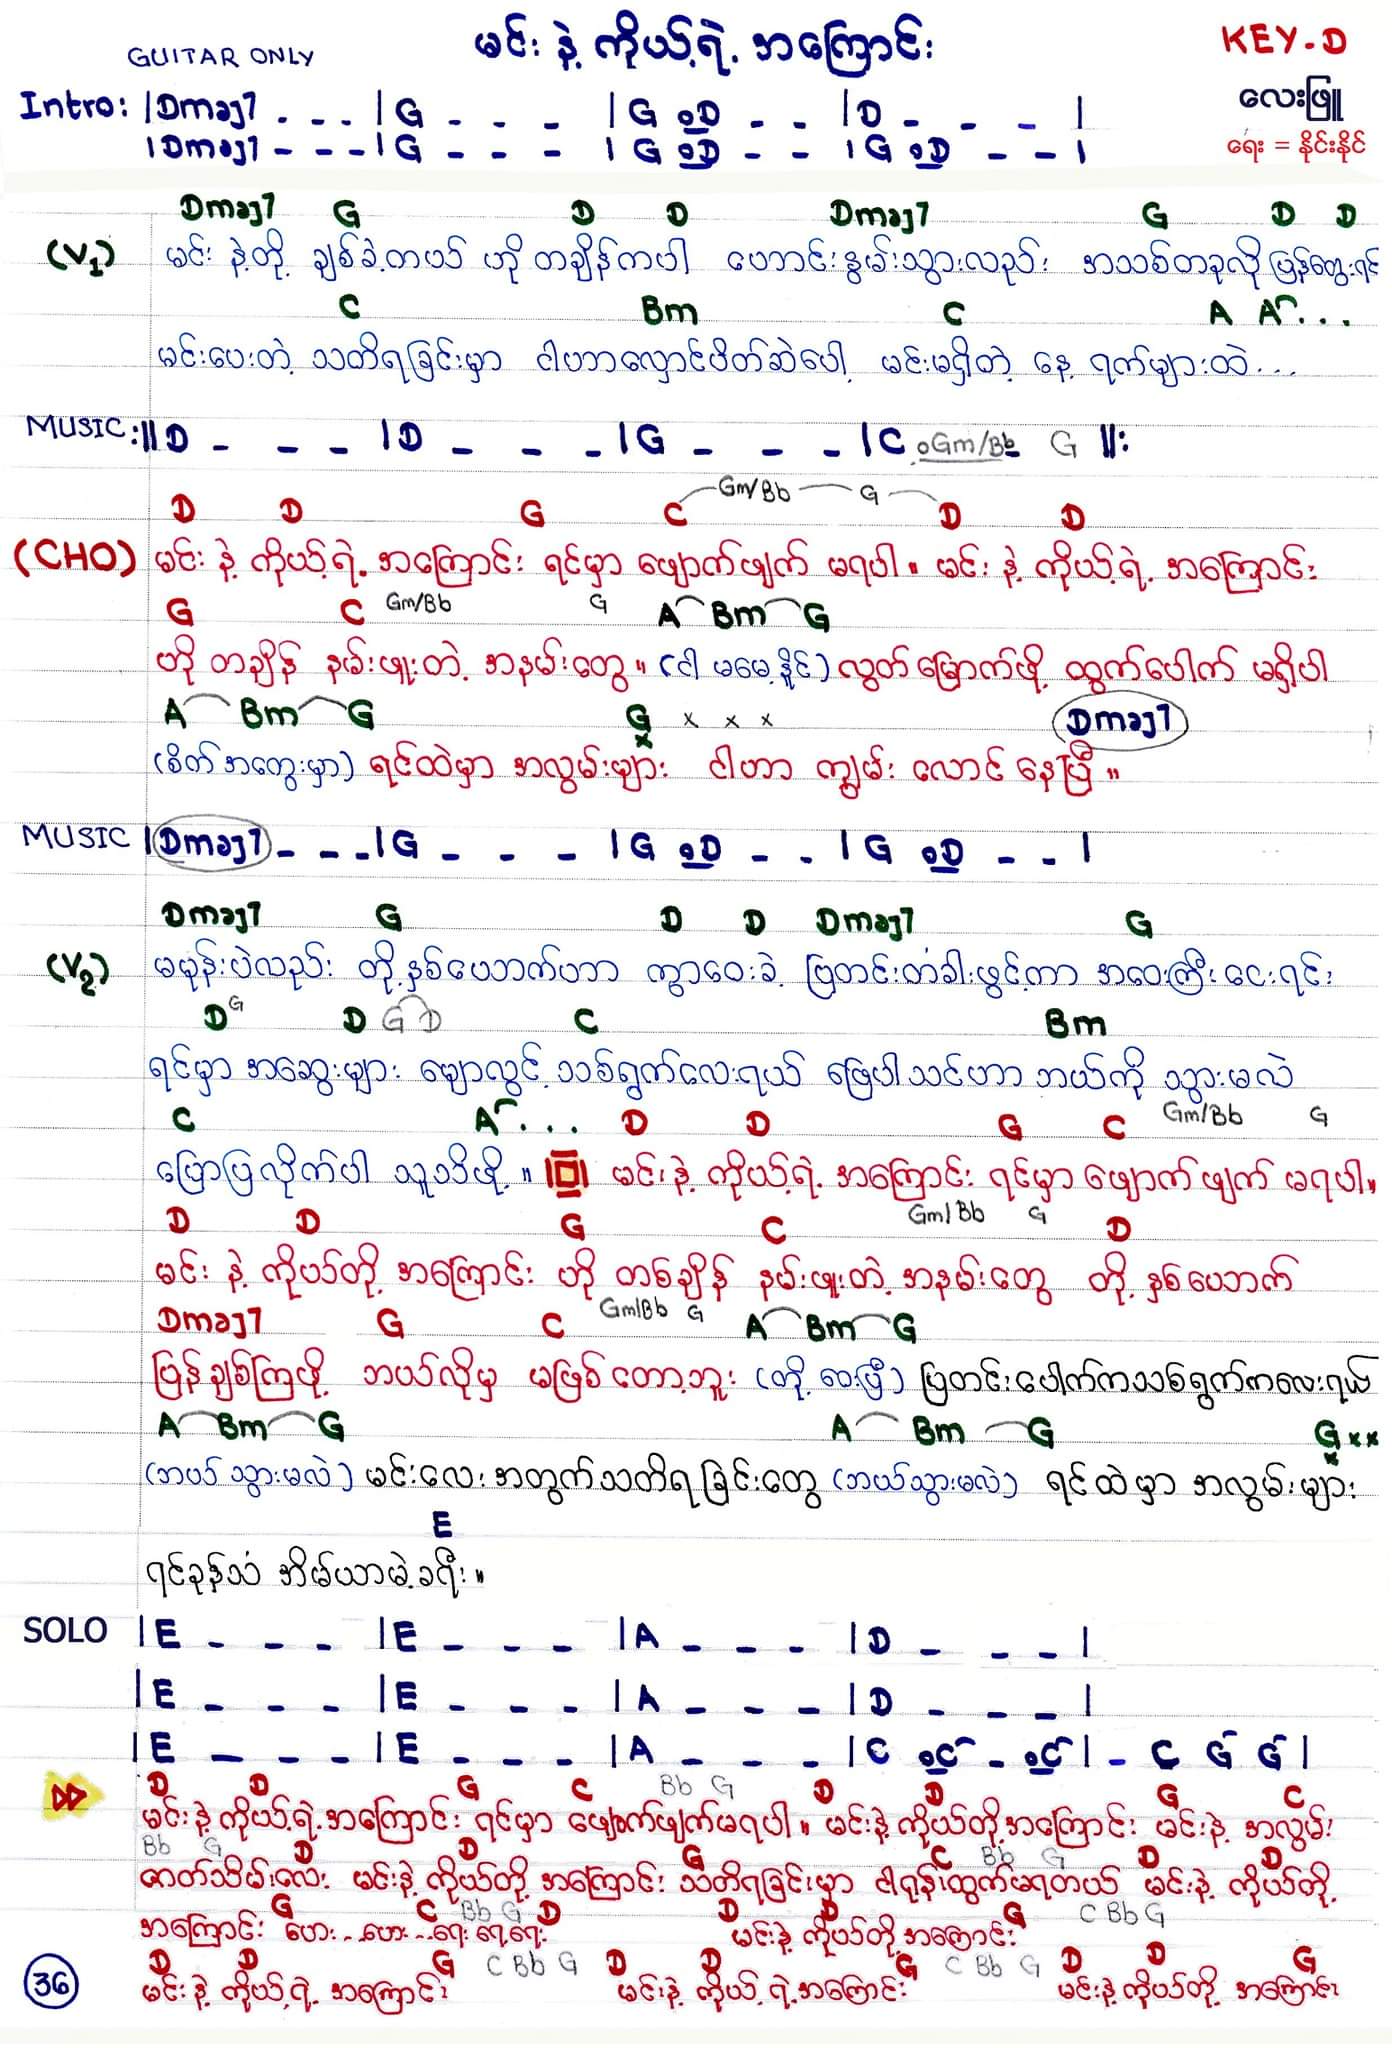 GUITAR ONLY မင်း နဲ့ ကိုယ့်ရဲ့ အကြောင်း KEY-D
Intro: |Dmaj7 - - - |G - - - |G oD - - |D - - - | လေးဖြူ
|Dmaj7 - - - |G - - - |G oD - - |G oD - - | ရေး = နိုင်းနိုင်
Dmaj7 G D D Dmaj7 G D D
(V1) မင်း နဲ့တို့ ချစ်ခဲ့တယ် ဟို တချိန်ကပါ ဟောင်းနွမ်းသွားလည်း အသစ်တခုလို ပြန်တွေးရင်
C Bm C A A...
မင်းပေးတဲ့ သတိရခြင်းမှာ ငါဟာလှောင်ပိတ်ဆဲပေါ့ မင်းမရှိတဲ့ နေ့ ရက်များထဲ...
MUSIC :||D - - - |D - - - |G - - - |C oGm/Bb G ||:
D D G C Gm/Bb G D D
(CHO) မင်း နဲ့ ကိုယ့်ရဲ့ အကြောင်း ရင်မှာ ဖျောက်ဖျက် မရပါ။ မင်း နဲ့ ကိုယ့်ရဲ့ အကြောင်း
G C Gm/Bb G A Bm G
ဟို တချိန် နမ်းဖူးတဲ့ အနမ်းတွေ။ (ငါ မမေ့နိုင်) လွတ်မြောက်ဖို့ ထွက်ပေါက် မရှိပါ
A Bm G G x x x Dmaj7
(စိတ်အတွေးမှာ) ရင်ထဲမှာ အလွမ်းများ ငါဟာ ကျွမ်း လောင် နေပြီ။
MUSIC |Dmaj7 - - - |G - - - |G oD - - |G oD - - |
Dmaj7 G D D Dmaj7 G
(V2) မမုန်းပဲလည်း တို့နှစ်ယောက်ဟာ ကွာဝေးခဲ့ ပြတင်းတံခါးဖွင့်ကာ အဝေးကြီးငေးရင်း
D G D G D C Bm
ရင်မှာ အဆွေးများ မျောလွင့် သစ်ရွက်လေးရယ် ဖြေပါသင်ဟာ ဘယ်ကို သွားမလဲ
C A... D D G C Gm/Bb G
ပြောပြလိုက်ပါ သူသိဖို့။ မင်းနဲ့ ကိုယ့်ရဲ့ အကြောင်း ရင်မှာ ဖျောက်ဖျက် မရပါ။
D D G C Gm/Bb G D
မင်း နဲ့ ကိုယ်တို့ အကြောင်း ဟို တစ်ချိန် နမ်းဖူးတဲ့ အနမ်းတွေ တို့ နှစ်ယောက်
Dmaj7 G C Gm/Bb G A Bm G
ပြန်ချစ်ကြဖို့ ဘယ်လိုမှ မဖြစ်တော့ဘူး (တို့ ဝေးပြီ) ပြတင်းပေါက်ကသစ်ရွက်ကလေးရယ်
A Bm G A Bm G G x x
(ဘယ် သွားမလဲ) မင်းလေးအတွက်သတိရခြင်းတွေ (ဘယ်သွားမလဲ) ရင်ထဲမှာ အလွမ်းများ
E
ရင်ခုန်သံ အိမ်ယာမဲ့ခရီး။
SOLO |E - - - |E - - - |A - - - |D - - - |
|E - - - |E - - - |A - - - |D - - - |
|E - - - |E - - - |A - - - |C oC - oC | - C G G |
D D G C Bb G D D G C
မင်းနဲ့ ကိုယ့်ရဲ့အကြောင်း ရင်မှာ ဖျောက်ဖျက်မရပါ။ မင်းနဲ့ ကိုယ်တို့အကြောင်း မင်းနဲ့ အလွမ်း
Bb G D D G C Bb G D D
ဇာတ်သိမ်းလေး မင်းနဲ့ ကိုယ်တို့ အကြောင်း သတိရခြင်းမှာ ငါရုန်းထွက်မရတယ် မင်းနဲ့ ကိုယ်တို့
G C Bb G D D D G C Bb G
အကြောင်း ဟေး...ဟေး...ရေး ရေ့ရေး မင်းနဲ့ ကိုယ်တို့အကြောင်း
D D G C Bb G D D G C Bb G D D G
36 မင်းနဲ့ ကိုယ့်ရဲ့ အကြောင်း မင်းနဲ့ ကိုယ့်ရဲ့အကြောင်း မင်းနဲ့ ကိုယ်တို့ အကြောင်း